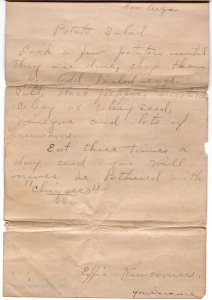 Potato Salad
Cook a few potatoes until
they are done, chop them
up. Add boiled eggs.
Salt, black pepper,
celery or celery seed,
vinegar and lots of
onions.
Eat three times a
day and you will
never be bothered with
"Chiggers"
Effie Newcomer.